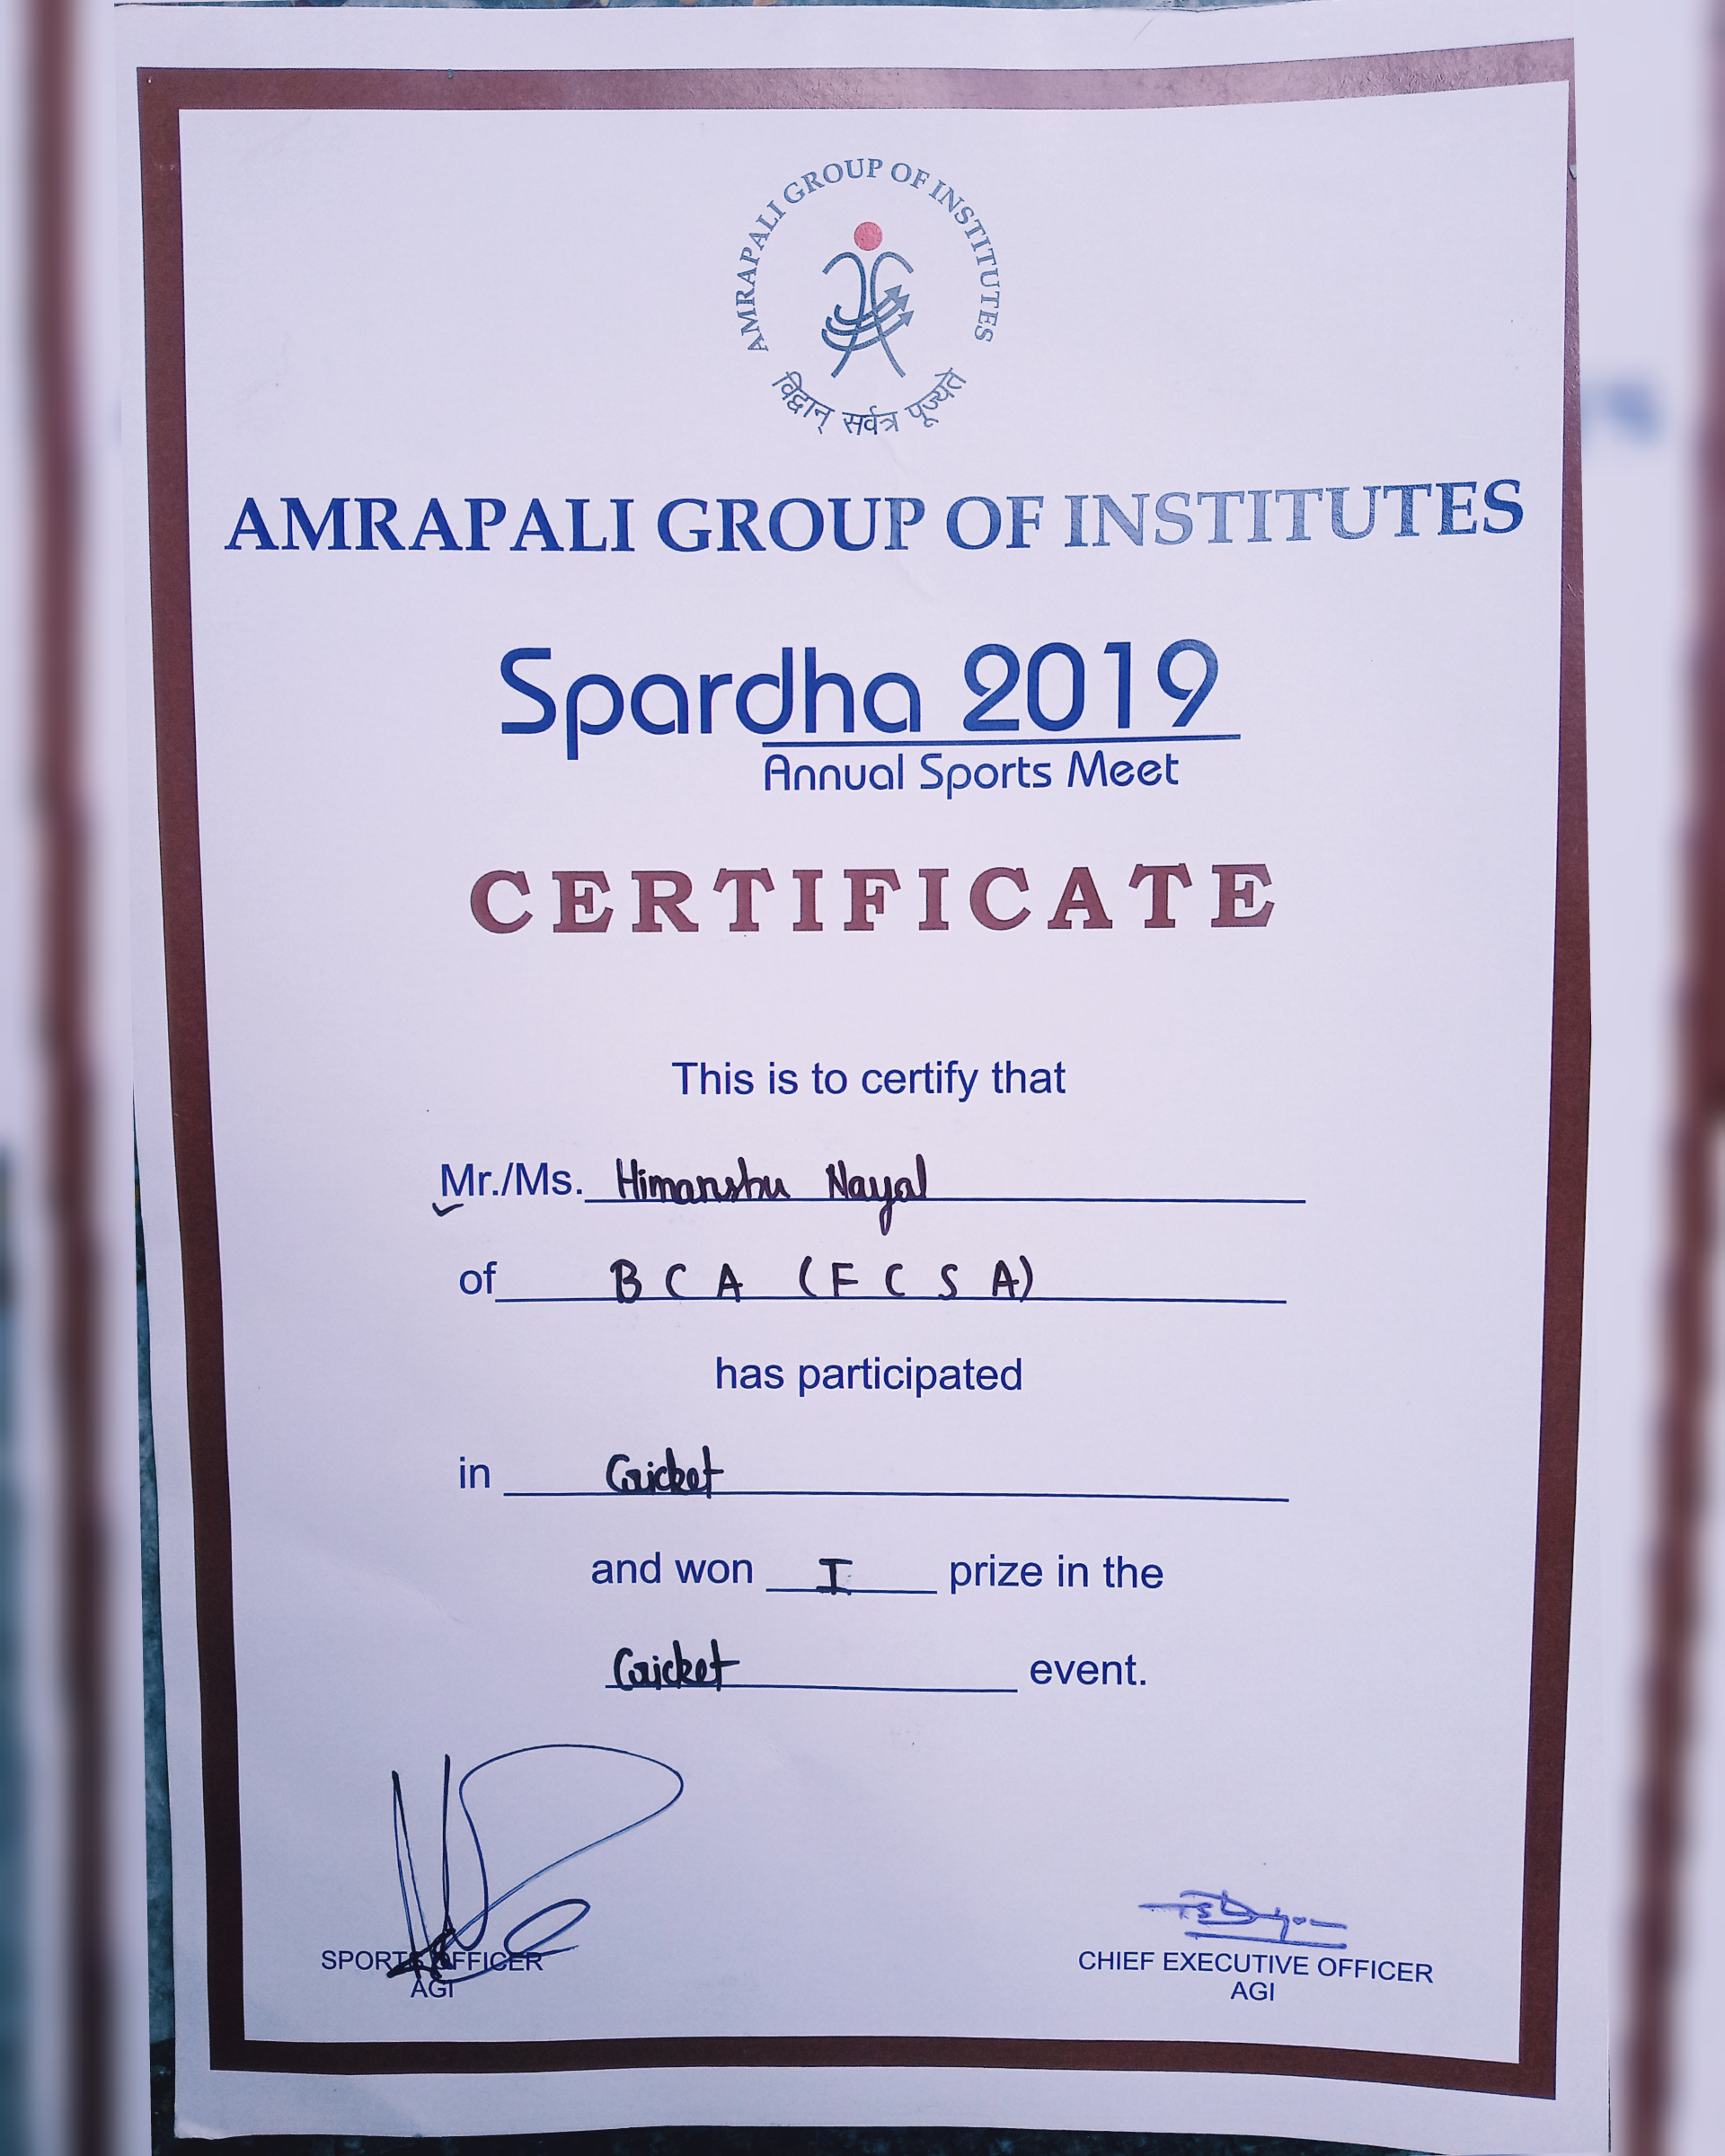 AMRAPALI GROUP OF INSTITUTES
विद्वान् सर्वत्र पूज्यते
AMRAPALI GROUP OF INSTITUTES
Spardha 2019
Annual Sports Meet
CERTIFICATE
This is to certify that
Mr./Ms. Himanshu Nayal
of BCA (FCSA)
has participated
in Cricket
and won I prize in the
Cricket event.
SPORTS OFFICER
AGI
CHIEF EXECUTIVE OFFICER
AGI